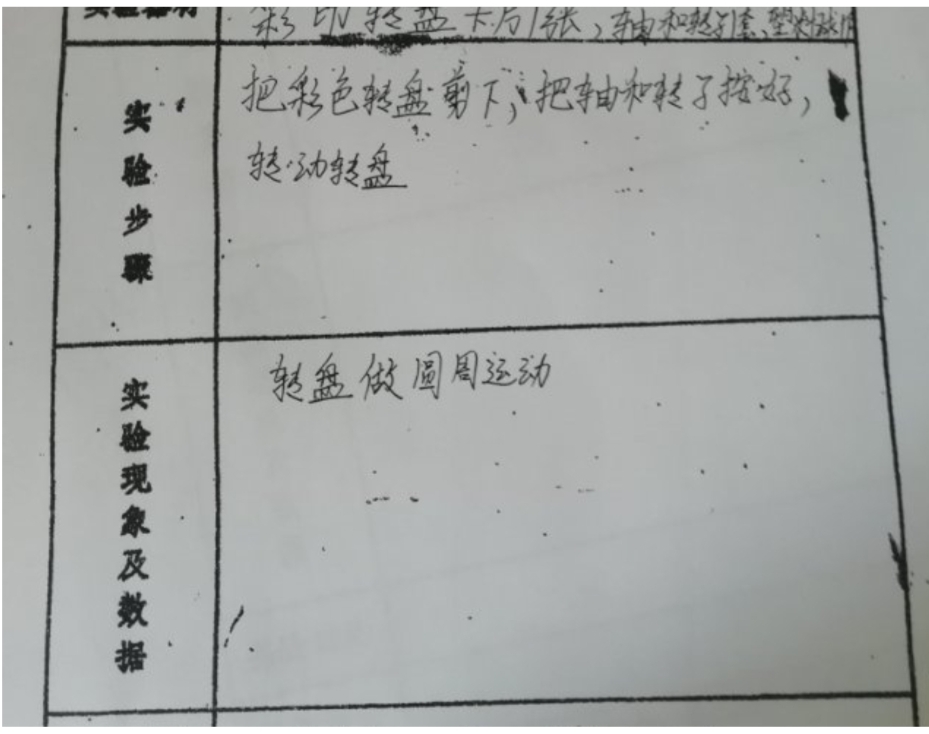 实验器材
彩印转盘卡片1张、轴和转子1套、塑料
实验步骤
把彩色转盘剪下,把轴和转子按好,
转动转盘
实验现象及数据
转盘做圆周运动